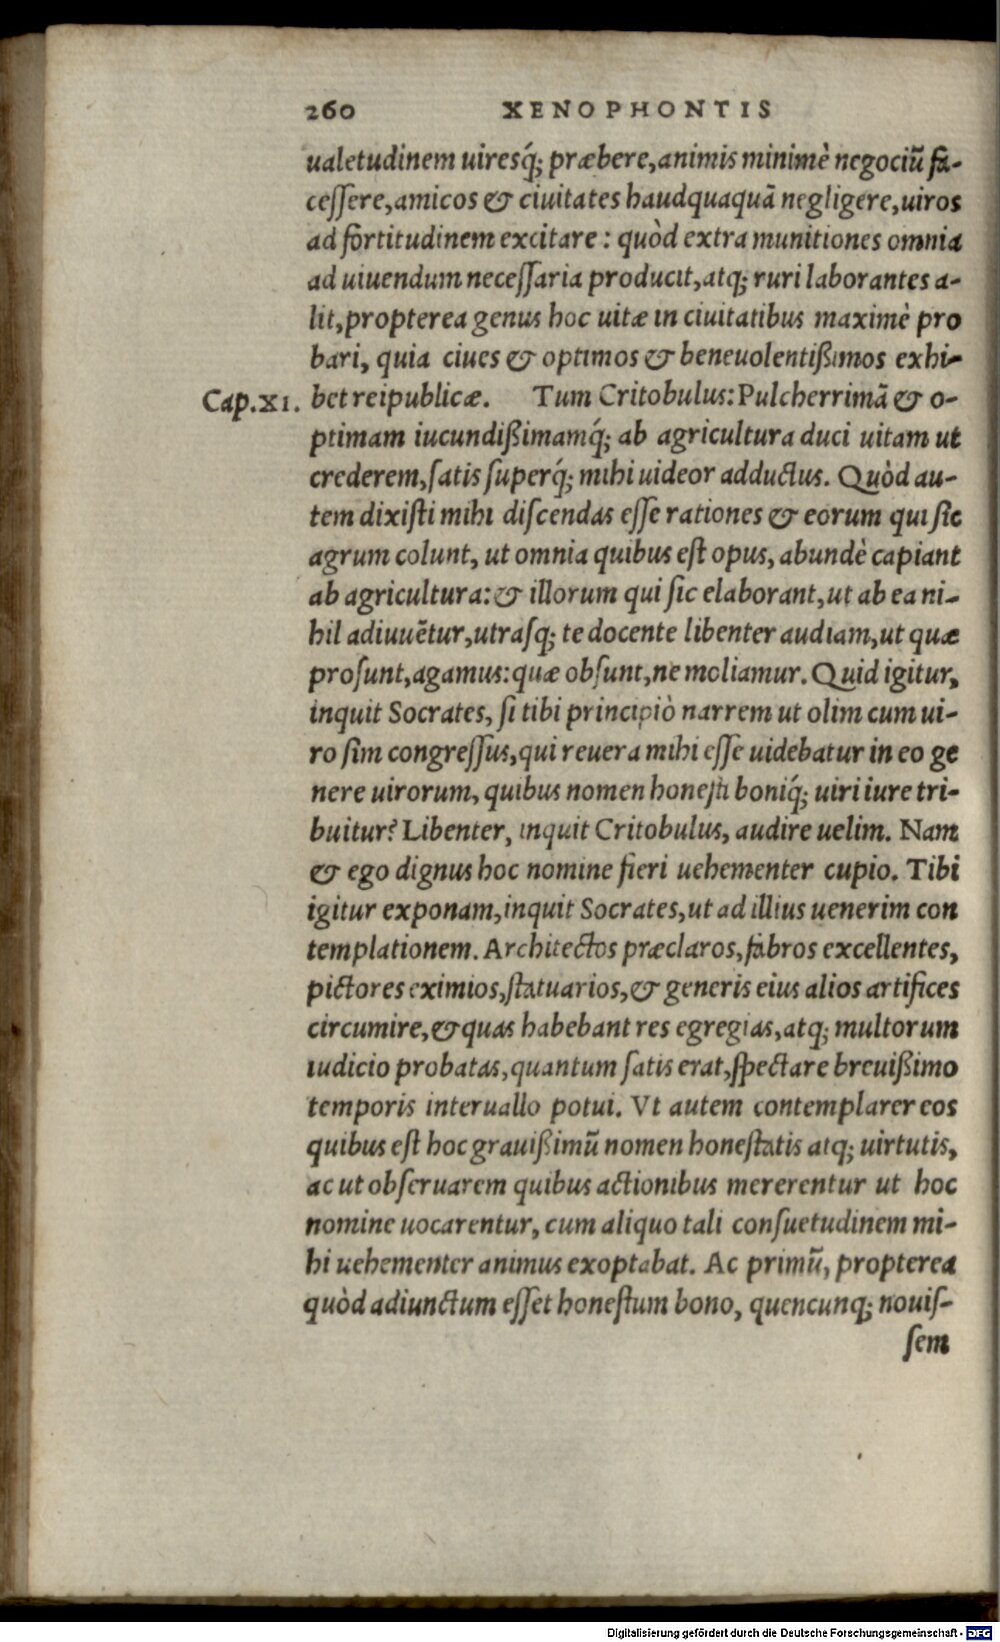 260 XENOPHONTIS
ualetudinem uiresq́; præbere, animis minimè negociũ fa-
ceſſere, amicos & ciuitates haudquaquã negligere, uiros
ad fortitudinem excitare: quòd extra munitiones omnia
ad uiuendum neceſſaria producit, atq; ruri laborantes a-
lit, propterea genus hoc uitæ in ciuitatibus maximè pro
bari, quia ciues & optimos & beneuolentißimos exhi-
Cap.XI. bet reipublicæ. Tum Critobulus: Pulcherrimã & o-
ptimam iucundißimamq́; ab agricultura duci uitam ut
crederem, ſatis ſuperq́; mihi uideor adductus. Quòd au-
tem dixiſti mihi diſcendas eſſe rationes & eorum qui ſic
agrum colunt, ut omnia quibus eſt opus, abundè capiant
ab agricultura: & illorum qui ſic elaborant, ut ab ea ni-
hil adiuuẽtur, utraſq; te docente libenter audiam, ut quæ
proſunt, agamus: quæ obſunt, ne moliamur. Quid igitur,
inquit Socrates, ſi tibi principiò narrem ut olim cum ui-
ro ſim congreſſus, qui reuera mihi eſſe uidebatur in eo ge
nere uirorum, quibus nomen honeſti boniq́; uiri iure tri-
buitur? Libenter, inquit Critobulus, audire uelim. Nam
& ego dignus hoc nomine fieri uehementer cupio. Tibi
igitur exponam, inquit Socrates, ut ad illius uenerim con
templationem. Architectos præclaros, fabros excellentes,
pictores eximios, ſtatuarios, & generis eius alios artifices
circumire, & quas habebant res egregias, atq; multorum
iudicio probatas, quantum ſatis erat, ſpectare breuißimo
temporis interuallo potui. Vt autem contemplarer eos
quibus eſt hoc grauißimũ nomen honeſtatis atq; uirtutis,
ac ut obſeruarem quibus actionibus mererentur ut hoc
nomine uocarentur, cum aliquo tali conſuetudinem mi-
hi uehementer animus exoptabat. Ac primũ, propterea
quòd adiunctum eſſet honeſtum bono, quencunq; nouiſ-
ſem
Digitalisierung gefördert durch die Deutsche Forschungsgemeinschaft - DFG